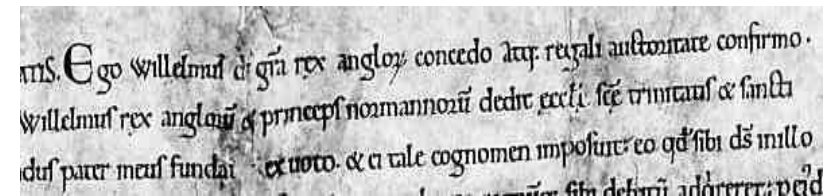 Ego Willelmus di gra rex angloꝝ concedo atq. regali auctoritate confirmo.
Willelmus rex angloꝝ & princeps normannorū dedit eccli. scē trinitatis & sancti
pater meus fundaꝰ ex uoto. & ei tale cognomen imposuit: eo qd sibi ds in illo
sibi